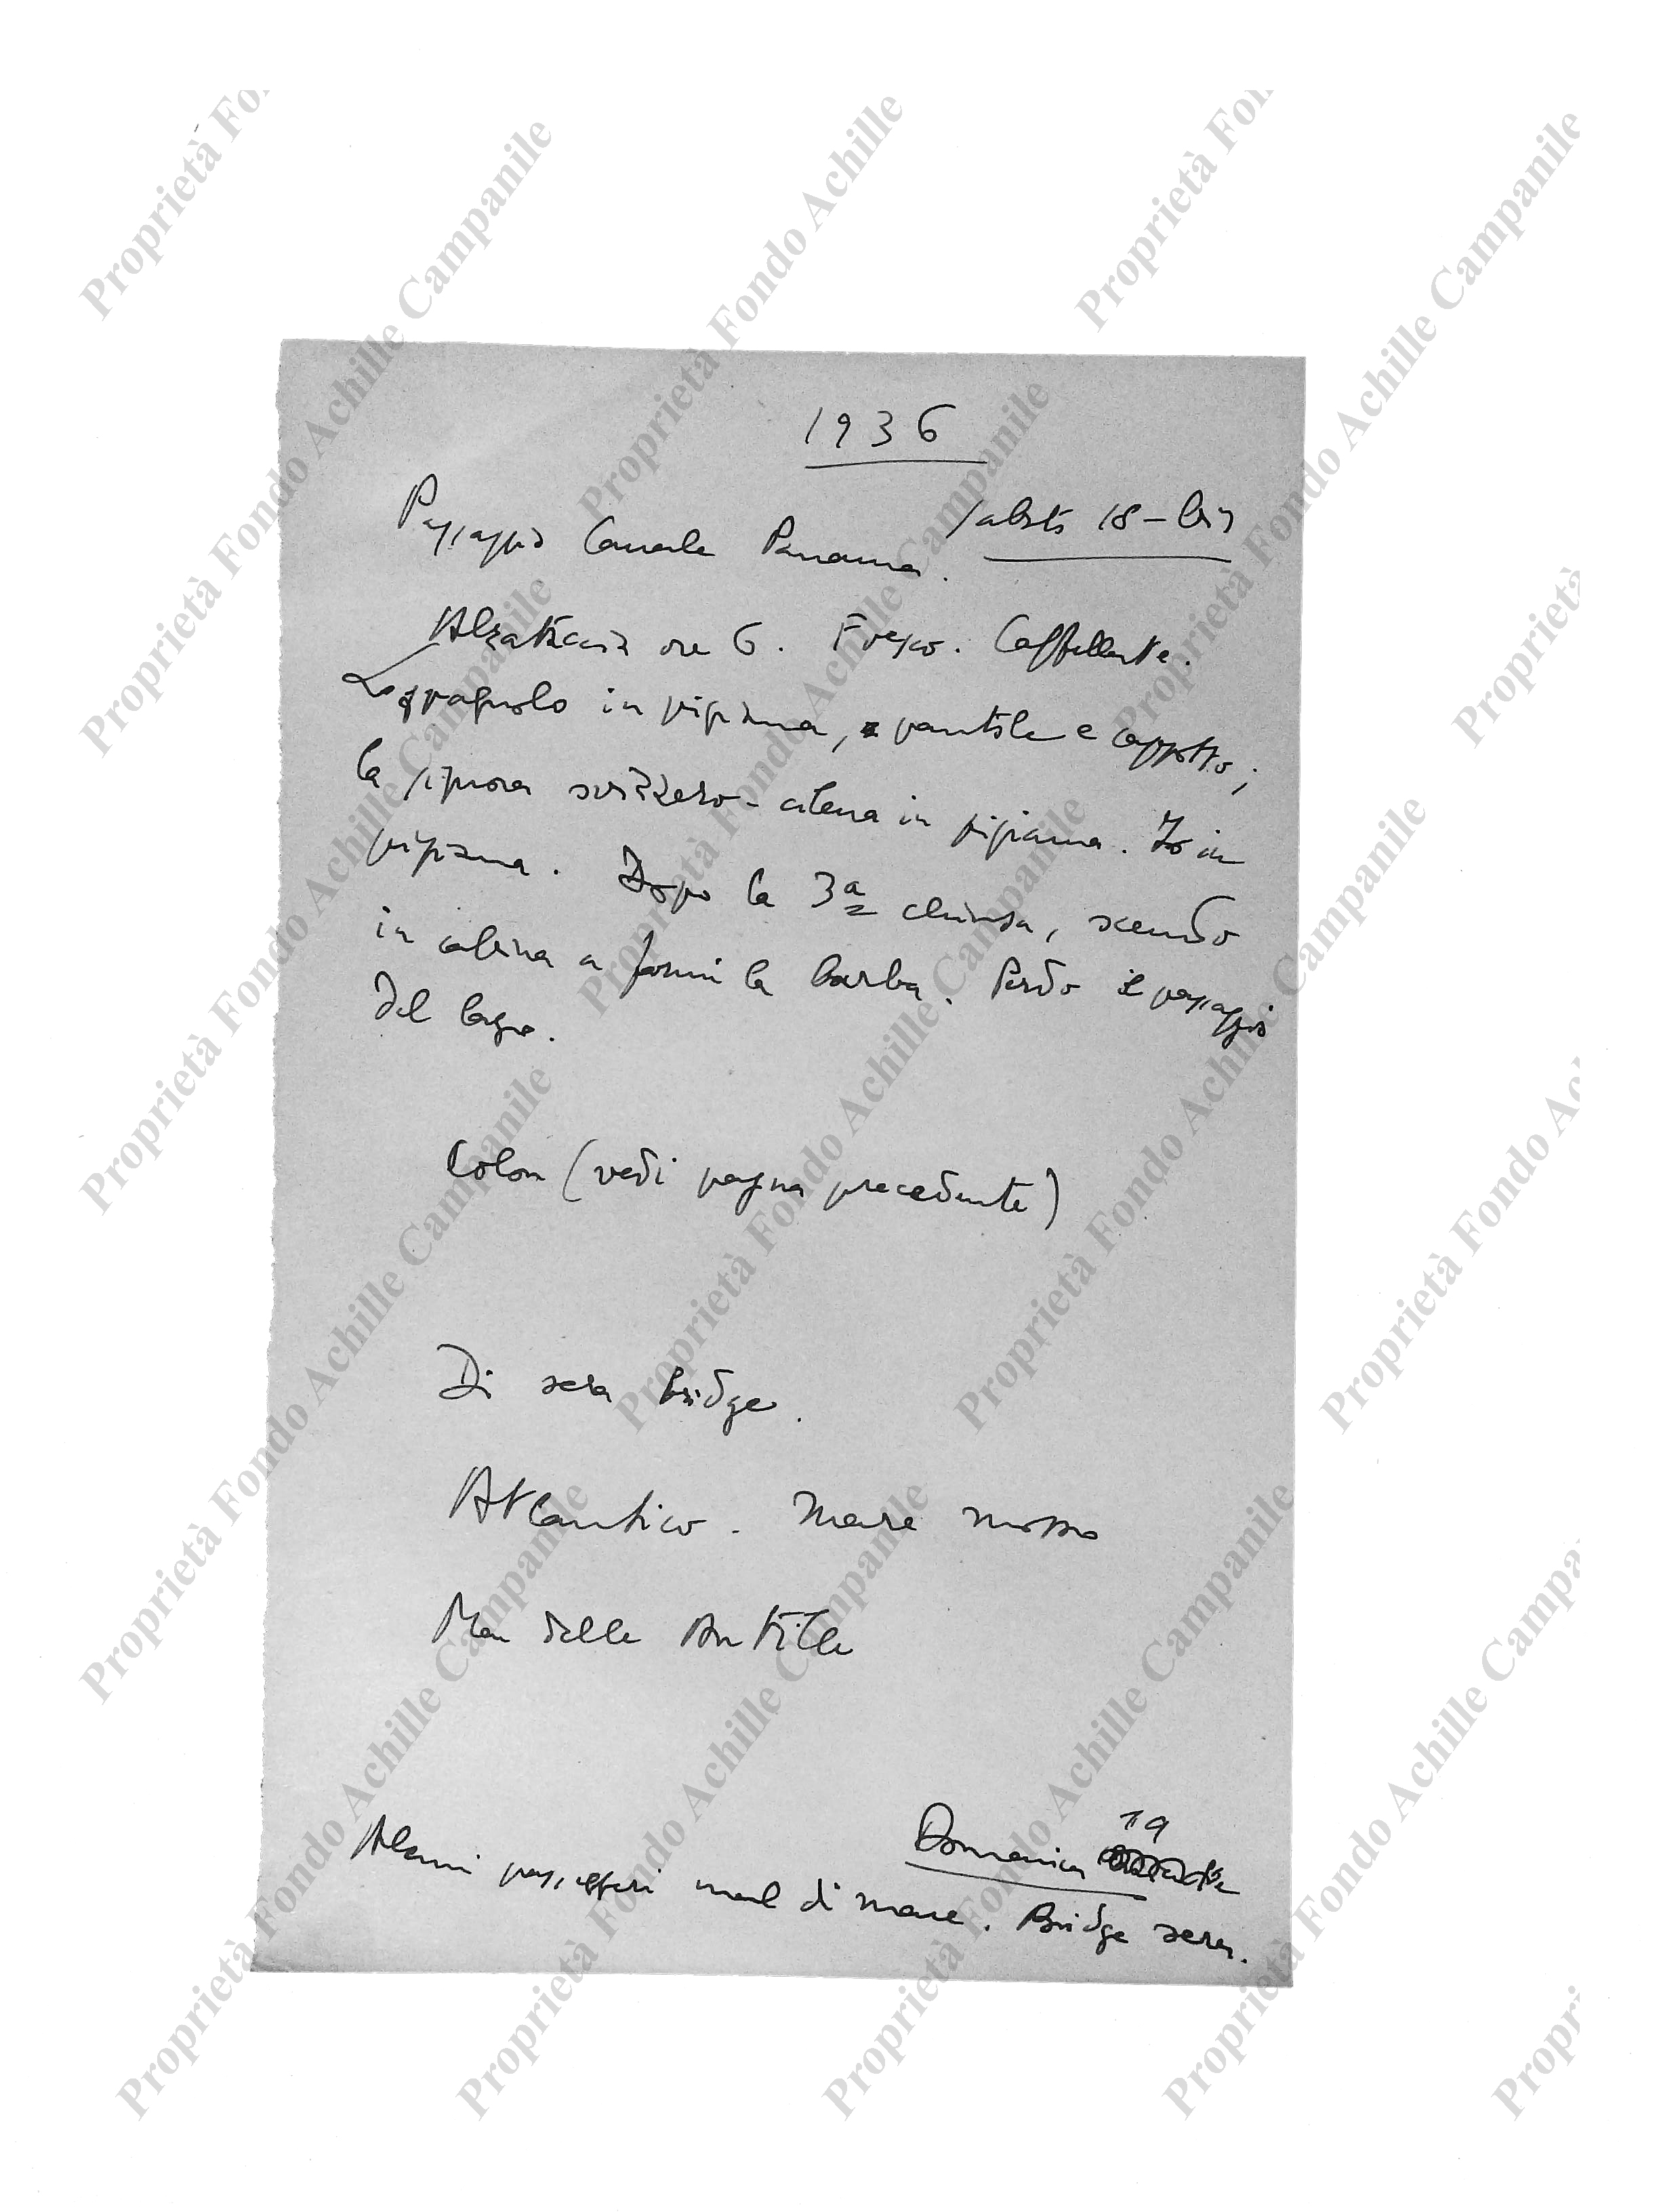 1936
Sabato 18-bis
Passaggio Canale Panama.
Alzataccia ore 6. Fresco. Caffellatte.
Lo spagnolo in pigiama, pantofole e cappotto;
la signora svizzero-cilena in pigiama. Io in
pigiama. Dopo la 3ª chiusa, scendo
in cabina a farmi la barba. Perdo il passaggio
del lago.
Colon (vedi pagina precedente)
Di sera bridge.
Atlantico. Mare mosso
Mar delle Antille
Domenica 19
Alcuni passeggeri mal di mare. Bridge sera.
Proprietà Fondo Achille Campanile